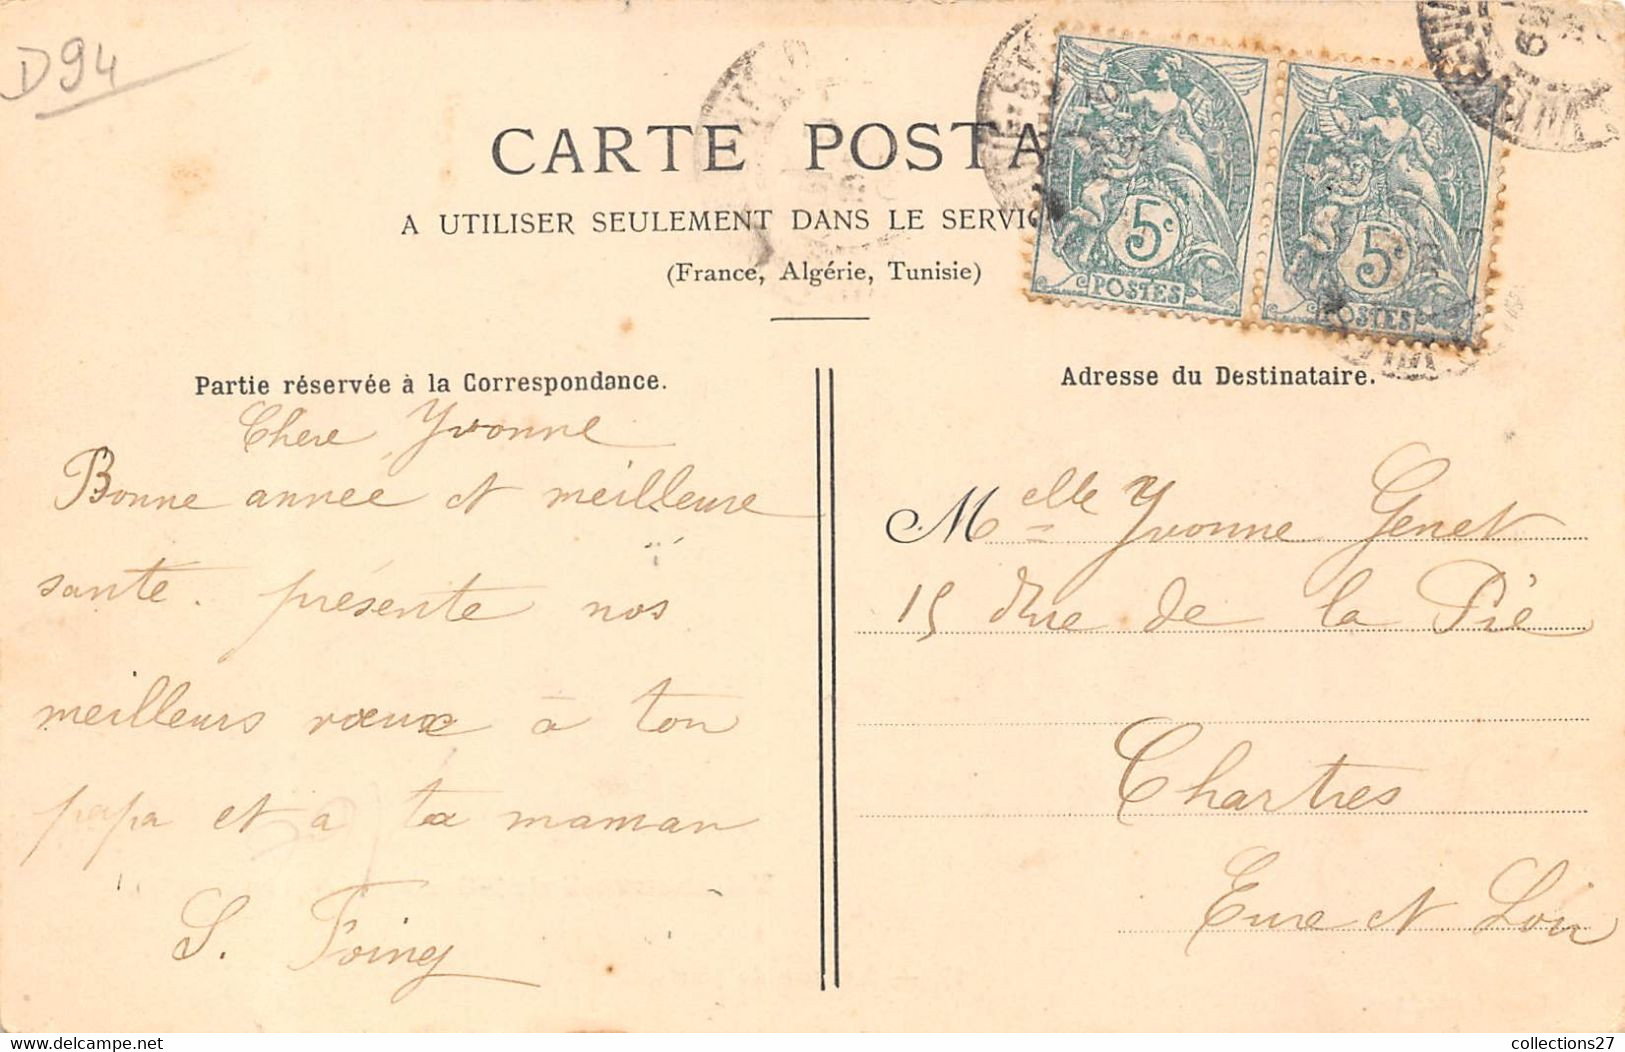 D94
CARTE POSTA
A UTILISER SEULEMENT DANS LE SERVIC
(France, Algérie, Tunisie)
5c
POSTES
5c
POSTES
Partie réservée à la Correspondance.
Chere Yvonne
Bonne année et meilleure
santé. présente nos
meilleurs vœux à ton
papa et a ta maman
S.
Adresse du Destinataire.
Melle Yvonne Genet
15 Rue de la Pie
Chartres
Eure et Loir
collections27